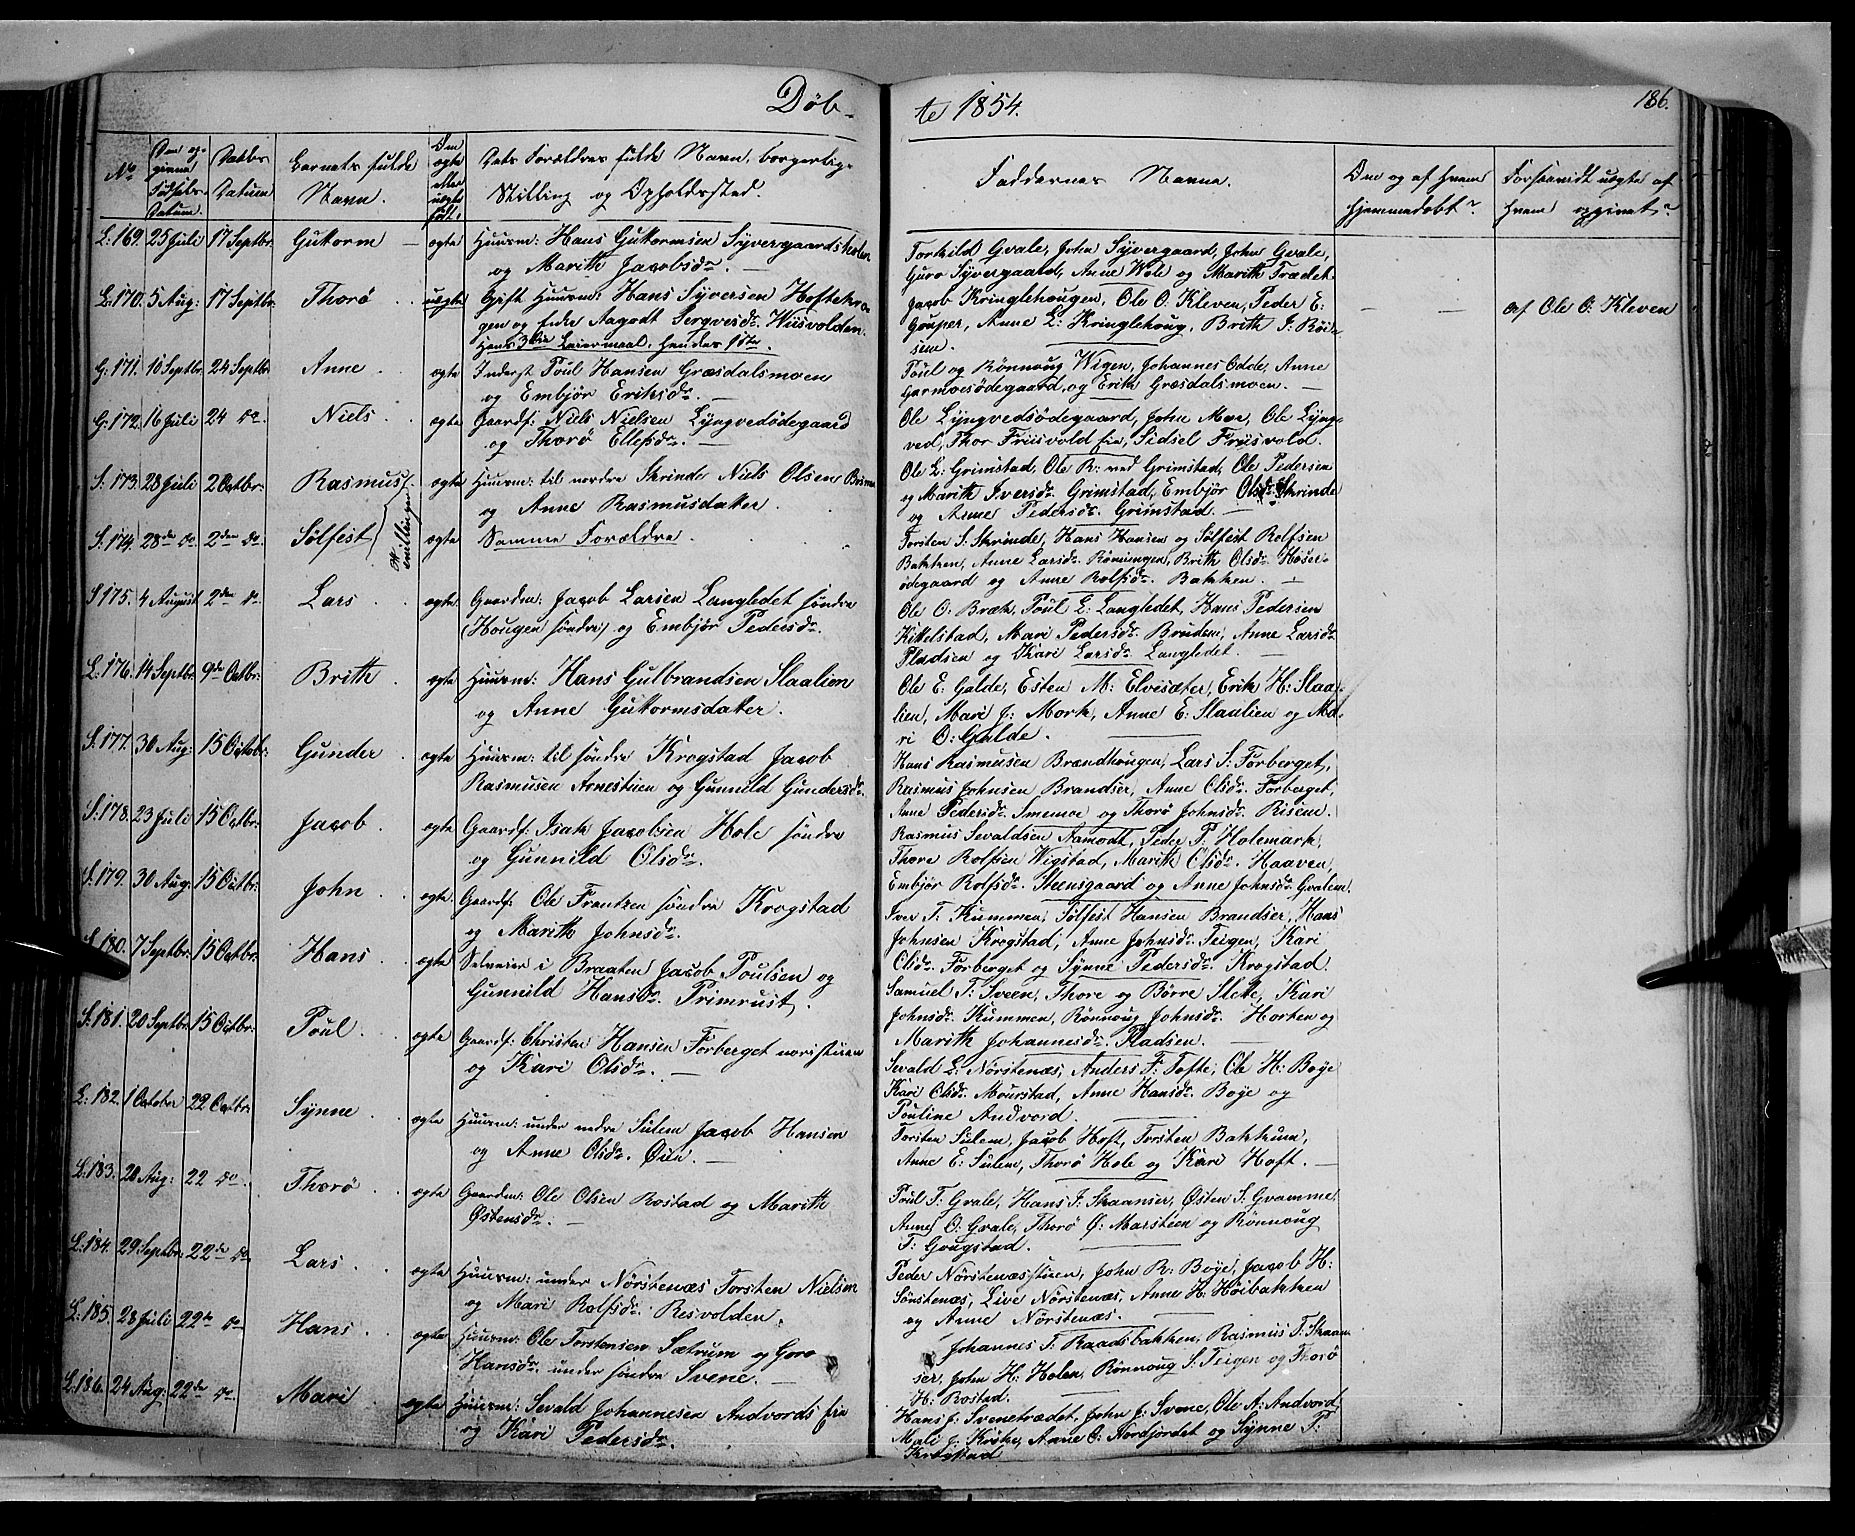 Døb-
te 1854.
186.
No
Den op-
givne
Fødsels-
Datum.
Daabs
Datum
Barnets fulde
Navn.
Om
ægte
eller
uægte
født.
Dets Forældres fulde Navn, borgerlige
Stilling og Opholdssted.
Faddernes Navne.
Om og af hvem
hjemmedøbt?
Forsaavidt uægte af
hvem opgivet?
L: 169. 25 Juli 17 Septbr. Gutorm ægte Huusm: Hans Guttormsen Syvergaardsholen
og Marith Jacobsdr.
Torhild Gvale, John Syvergaard, John Gvale,
Guro Syvergaard, Anne Wole og Marith Trædet.
L: 170. 5 Aug: 17 Septbr. Thorø uægte Gift Huusm: Hans Syversen Hoftekro-
gen og Enke Aagodt Sergvesdr. Wiisvolden.
Hans 3die Leiermaal, hendes 1ste.
Jacob Kringlehougen, Ole O: Kleven, Peder E:
Goupер, Anne E: Kringlehoug, Brith J: Røi-
sem.
af Ole O: Kleven
G: 171. 10 Septbr. 24 Septbr Anne ægte Inderst Poul Hansen Græsdalsmoen
og Embjør Eriksdr.
Poul og Rønnoug Wigen, Johannes Odde, Anne
Garmoesødegaard, og Erik Græsdalsmoen.
G: 172. 16 Juli 24 do. Niels ægte Gaardf: Niels Nielsen Lyngvedødegaard
og Thorø Ellefsdr.
Ole Lyngvedsødegaard, John Moe, Ole Lyng-
ved, Thor Friisvold fra, Sidsel Friisvold.
S: 173. 28 Juli 2 Octbr: Rasmus ægte Huusm: til nordre Skrinde Niels Olsen
og Anne Rasmusdatter.
Tvillinger
Ole E: Grimstad, Ole R: ved Grimstad, Ole Pedersen
og Marith Iversdr. Grimstad, Embjør Olsdr. Skrinde
og Anne Pedersdr. Grimstad.
S: 174. 28de do. 2den do Sølfest ægte Samme Forældre.
Torsten S: Skrinde, Hans Hansen og Sølfest Rolfsen
Bakken, Anne Larsdr. Rønningen, Brith Olsdr. Høser-
ødegaard og Anne Rolfsdr. Bakken.
S 175. 4 August 2den do Lars ægte Gaardm: Jacob Larsen Langledet søndre
(Hougen søndre) og Embjør Pedersdr.
Ole O: Bræk, Poul L: Langledet, Hans Pedersen
Kikkelstad, Mari Pedersdr. Bruden, Anne Larsdr.
Pladsen og Kari Larsdr. Langledet.
L: 176. 14 Septbr. 9de Octbr: Brith ægte Huusm: Hans Gulbrandsen Slaalien
og Anne Guttormsdatter.
Ole E: Galde, Esten M: Elvesæter, Erik H: Slaa-
lien, Mari J: Mork, Anne E: Slaalien og Ma-
ri O: Galde.
S: 177. 30 Aug: 15 Octobr: Gunder ægte Huusm: til søndre Krogstad Jacob
Rasmusen Arnestuen og Gunnild Gundersdr.
Hans Rasmusen Brændhougen, Lars S: Forberget,
Rasmus Johnsen Brandser, Anne Olsdr. Forberget,
Anne Pedersdr. Smemoe og Thorø Johnsdr. Risem.
S: 178. 23 Juli 15 Octbr: Jacob ægte Gaardf: Isak Jacobsen Hole søndre
og Gunnild Olsdr.
Rasmus Sevaldsen Aamodt, Peder P. Holemark,
Thore Rolfsen Wigstad, Marith Olsdr. Haaven,
Embjør Rolfsdr. Steensgaard og Anne Johnsdr. Gvalem.
S: 179. 30 Aug: 15 Octbr: John ægte Gaardf: Ole Frantzen søndre Krogstad
og Marith Johnsdr.
Iver T. Kummen, Sølfest Hansen Brandser, Hans
Johnsen Krogstad, Anne Johnsdr. Teigen, Kari
Olsdr. Forberget og Synne Pedersdr. Krogstad.
S 180. 7 Septbr. 15 Octbr: Hans ægte Selveier i Braaten Jacob Poulsen og
Gunnild Hansdr. Primrust.
Samuel T: Sveen, Thore og Børre Slette, Kari
Johnsdr. Kummen, Rønnoug Johnsdr. Horten og
Marith Johannesdr. Pladsen.
S: 181. 20 Septbr. 15 Octbr: Poul ægte Gaardf: Christen Hansen Forberget noristuen
og Kari Olsdr.
Sevald L: Nørstenæs, Anders F: Tofte, Ole H: Boye
Kari Olsdr. Mourstad, Anne Hansdr. Boye og
Pouline Andvord.
L: 182. 1 October 22 Octbr: Synne ægte Huusm: under nedre Sulem Jacob Hansen
og Anne Olsdr. Øien.
Torsten Sulem, Jacob Hoft, Torsten Bakkum,
Anne E: Sulem, Thorø Hole og Kari Hoft.
L: 183. 20 Aug: 22 do. Thorø ægte Gaardm: Ole Olsen Rostad og Marith
Østensdr.
Poul T. Gvale, Hans J: Skaanser, Østen S: Gvamme,
Anne O: Gvale, Thorø Ø: Marsteen og Rønnoug
T: Gougstad.
L: 184. 29 Septbr: 22de do Lars ægte Huusm: under Nørstenæs Torsten Nielsen
og Mari Rolfsdr. Resvolden.
Peder Nørstenæsstuen, John R: Boye, Jacob H:
Sønstenæs, Live Nørstenæs, Anne H. Høibakken
og Anne Nørstenæs.
L: 185. 28 Juli 22de do Hans ægte Huusm: Ole Torstensen Sætrum og Goro
Hansdr. under søndre Svene.
Johannes T: Raadsbakken, Rasmus T: Skaan-
ser, John H: Holen, Rønnoug S: Teigen og Thorø
H: Rostad.
L: 186. 24 Aug: 22de do Mari ægte Huusm: Sevald Johannesen Andvords fra
og Kari Pedersdr.
Hans J: Svenetrædet, John J: Svene, Ole A: Andvord,
Mali J: Kirke, Anne O: Nordjordet og Synne P:
Krogstad